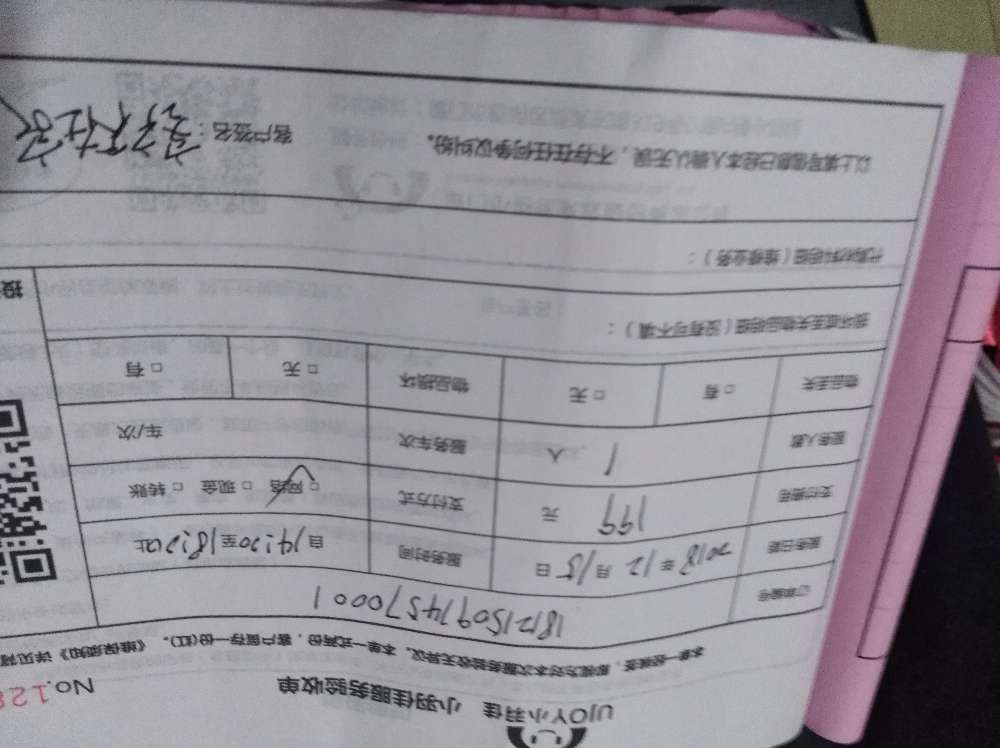 UJOY小羽佳 小羽佳服务验收单 No.128
本单一经签签，即视为对本次服务验收无异议。本单一式两份，客户留存一份(红)。《维保须知》详见背
订单编号 1812150974570001
服务日期 2018年12月15日 服务时间 自14:20至18:20止
支付费用 199元 支付方式 □网络 □现金 □转账
服务人数 1人 服务车次 车/次
物品丢失 □有 □无 物品损坏 □无 □有
损坏或丢失物品明细（没有可不填）：
代购材料明细（维修业务）：
投
以上填写信息已经本人确认无误，不存在任何争议纠纷。 客户签名：